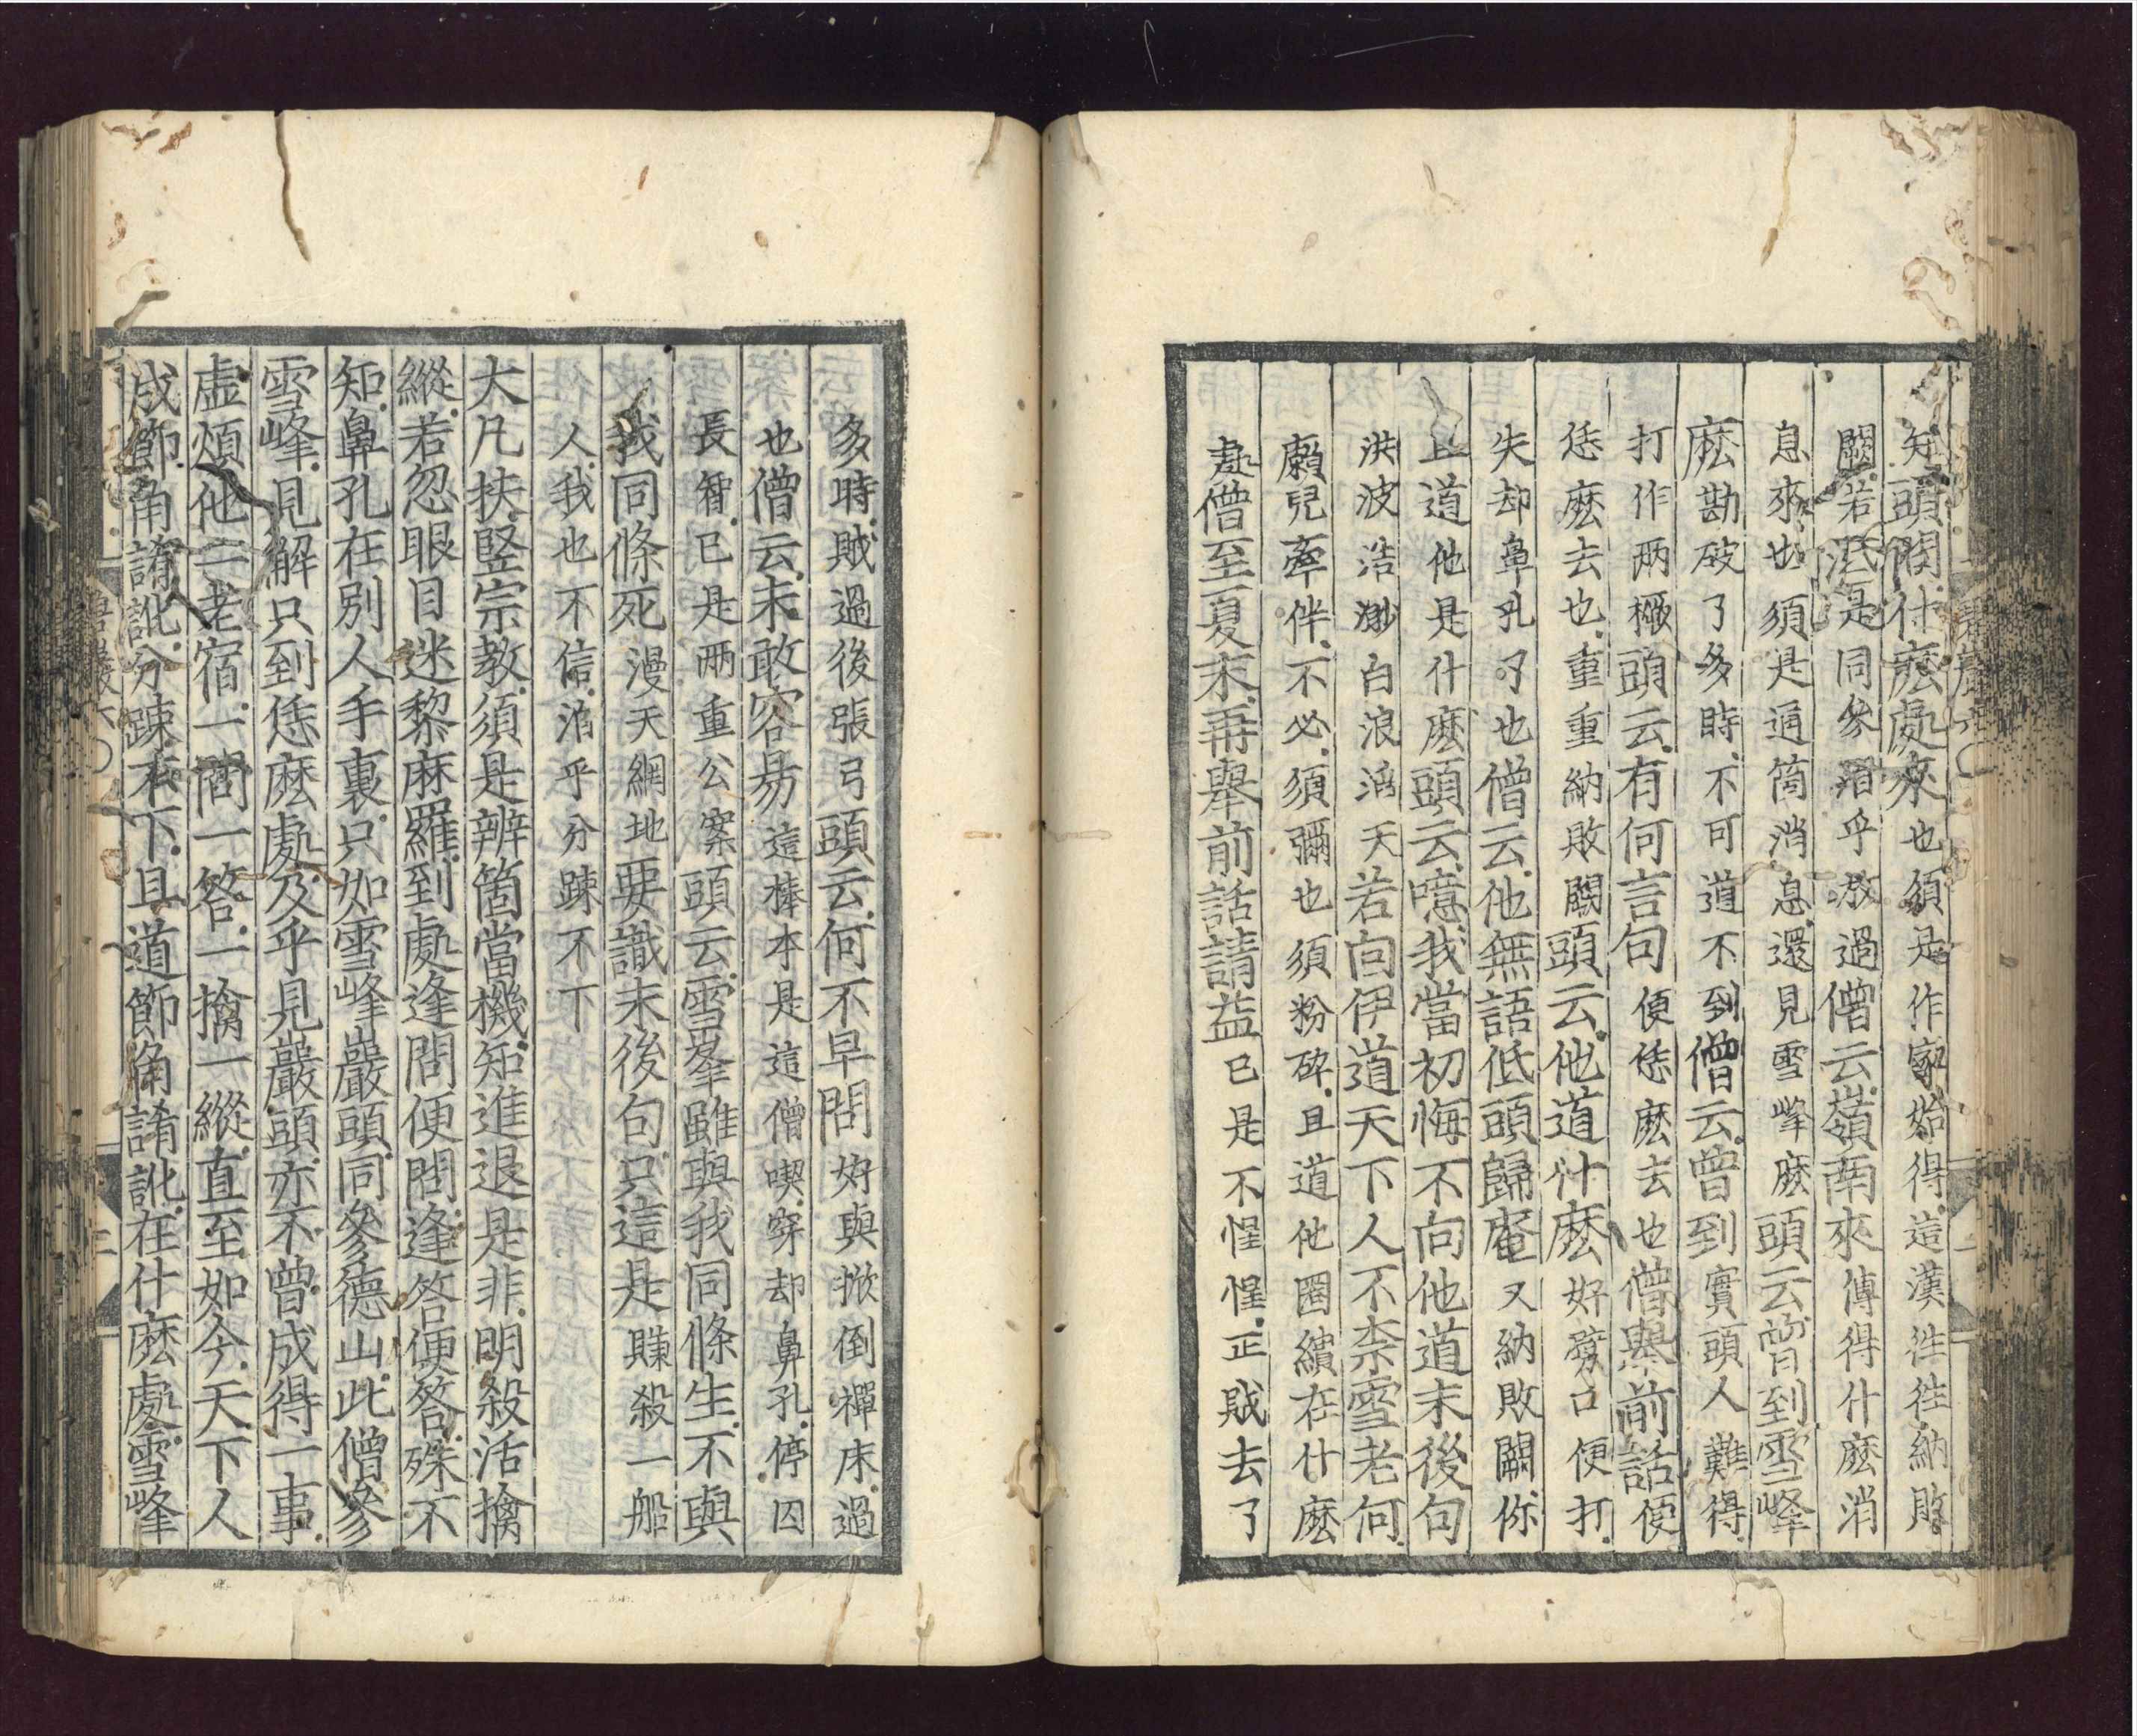 知頭問什麽處來也須是作家始得這漢往往納敗
闕若不是同參洎乎放過僧云嶺南來傳得什麽消
息來也須是通箇消息還見雪峰麽頭云曾到雪峰
麽勘破了多時不可道不到僧云曾到實頭人難得
打作兩橛頭云有何言句便恁麽去也僧舉前話便
恁麽去也重重納敗闕頭云他道什麽好劈口便打
失却鼻孔了也僧云他無語低頭歸庵又納敗闕你
且道他是什麽頭云噫我當初悔不向他道末後句
洪波浩渺白浪滔天若向伊道天下人不柰雪老何
癩兒牽伴不必須彌也須粉碎且道他圈繢在什麽
處僧至夏末再舉前話請益已是不惺惺正賊去了
多時賊過後張弓頭云何不早問好與掀倒禪床過
也僧云未敢容易這棒本是這僧喫穿却鼻孔停囚
長智已是兩重公案頭云雪峯雖與我同條生不與
我同條死漫天網地要識末後句只這是賺殺一船
人我也不信洎乎分踈不下
大凡扶竪宗教須是辨箇當機知進退是非明殺活擒
縱若忽眼目迷黎麻羅到處逢問便問逢答便答殊不
知鼻孔在別人手裏只如雪峰巖頭同參德山此僧參
雪峰見解只到恁麽處及乎見巖頭亦不曾成得一事
虛煩他二老宿一問一答一擒一縱直至如今天下人
成節角誵訛分踈不下且道節角誵訛在什麽處雪峰